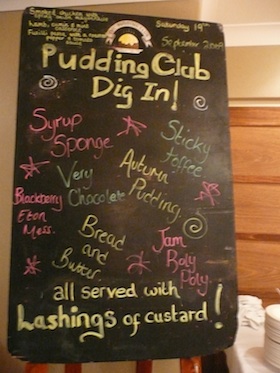 Smoked chicken with
spring onion
lamb, cumin & mint
Fusilli pasta with a roasted
pepper & tomato
Saturday 19th
September 2009
Pudding Club
Dig In!
Syrup
Sponge
Sticky
Toffee
Very
Chocolate
Autumn
Pudding.
Blackberry
Eton
Mess.
Bread
and
Butter
Jam
Roly
Poly.
all served with
Lashings of custard!